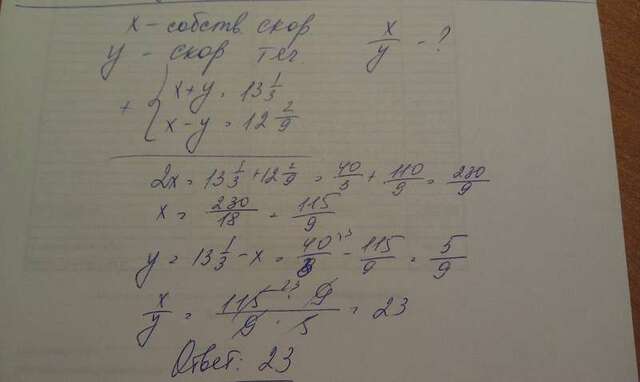 x - собств. скор
y - скор теч
x/y - ?
+ { x+y = 13 1/3
x-y = 12 2/9
2x = 13 1/3 + 12 2/9 = 40/3 + 110/9 = 230/9
x = 230/18 = 115/9
y = 13 1/3 - x = 40/3 ·3 - 115/9 = 5/9
x/y = 115 23 · 9 / 9 · 5 = 23
Ответ: 23